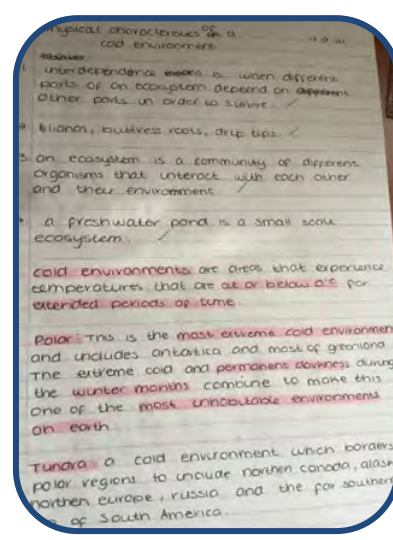 physical characteristics of a
cold environment
1. interdependence is when different
parts of an ecosystem depend on
other parts in order to
2. lilanas, buttress roots, drip tips
3. an ecosystem is a community of different
organisms that interact with each other
and their environment
a freshwater pond is a small scale
ecosystem.
cold environments are areas that experience
temperatures that are at or below 0°c for
extended periods of time.
Polar: This is the most extreme cold environmen
and includes antartica and most of greenland
The extreme cold and permanent darkness during
the winter months combine to make this
one of the most inhabitable environments
on earth
Tundra: a cold environment which borders
polar regions to include northen canada, alask
northen europe, russia and the far southern
of South America.